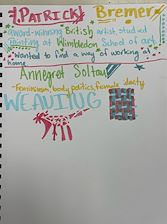 PATRICK Bremer
award-winning British artist, studied
painting at Wimbledon School of art.
Wanted to find a way of working at
home
Annegret Soltau
-feminism, body politics, female identity
WEAVING